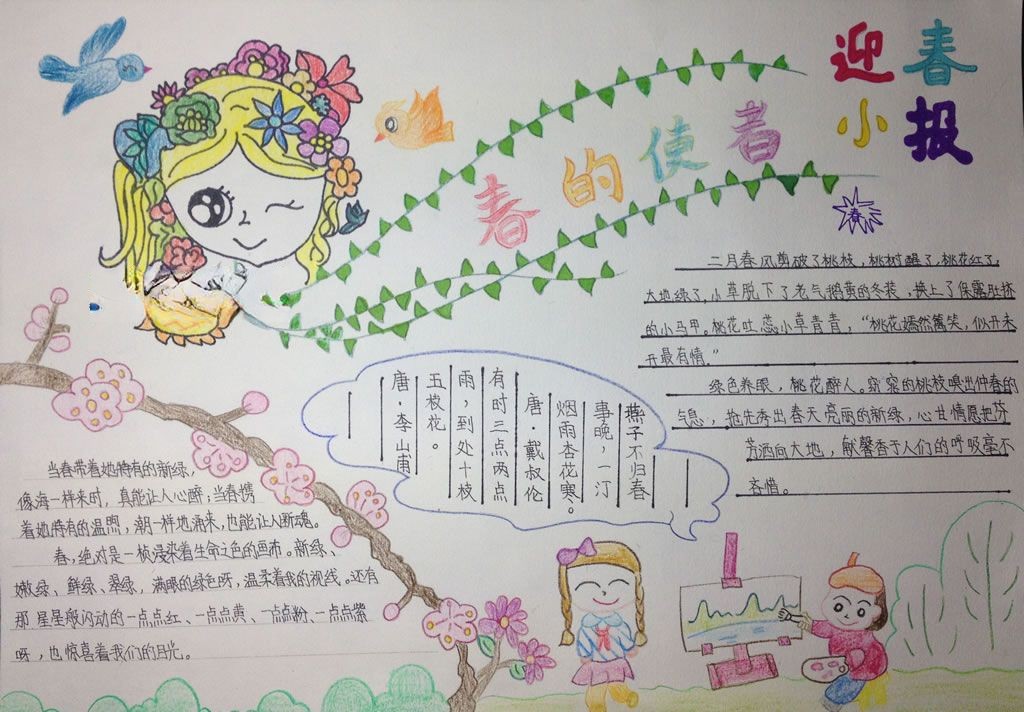 迎春
小报
春的使者
春
二月春风剪破了桃枝，桃树醒了，桃花红了，
大地绿了，小草脱下了老气鹅黄的冬装，换上了保露肚挤
的小马甲。桃花吐蕊小草青青，“桃花嫣然篱笑，似开未
开最有情。”
绿色养眼，桃花醉人。窈窕的桃枝嗅出仲春的
气息，抢先秀出春天亮丽的新绿，心甘情愿把芬
芳洒向大地，献馨香于人们的呼吸毫不
吝惜。
燕子不归春
事晚，一汀
烟雨杏花寒。
唐·戴叔伦
有时三点两点
雨，到处十枝
五枝花。
唐·李山甫
当春带着她特有的新绿，
像海一样来时，真能让人心醉；当春携
着她特有的温煦，潮一样地涌来，也能让人断魂。
春，绝对是一桢浸染着生命之色的画布。新绿、
嫩绿、鲜绿、翠绿，满眼的绿色呀，温柔着我的视线。还有
那星星般闪动的一点点红、一点点黄、一点点粉、一点点紫
呀，也惊喜着我们的目光。